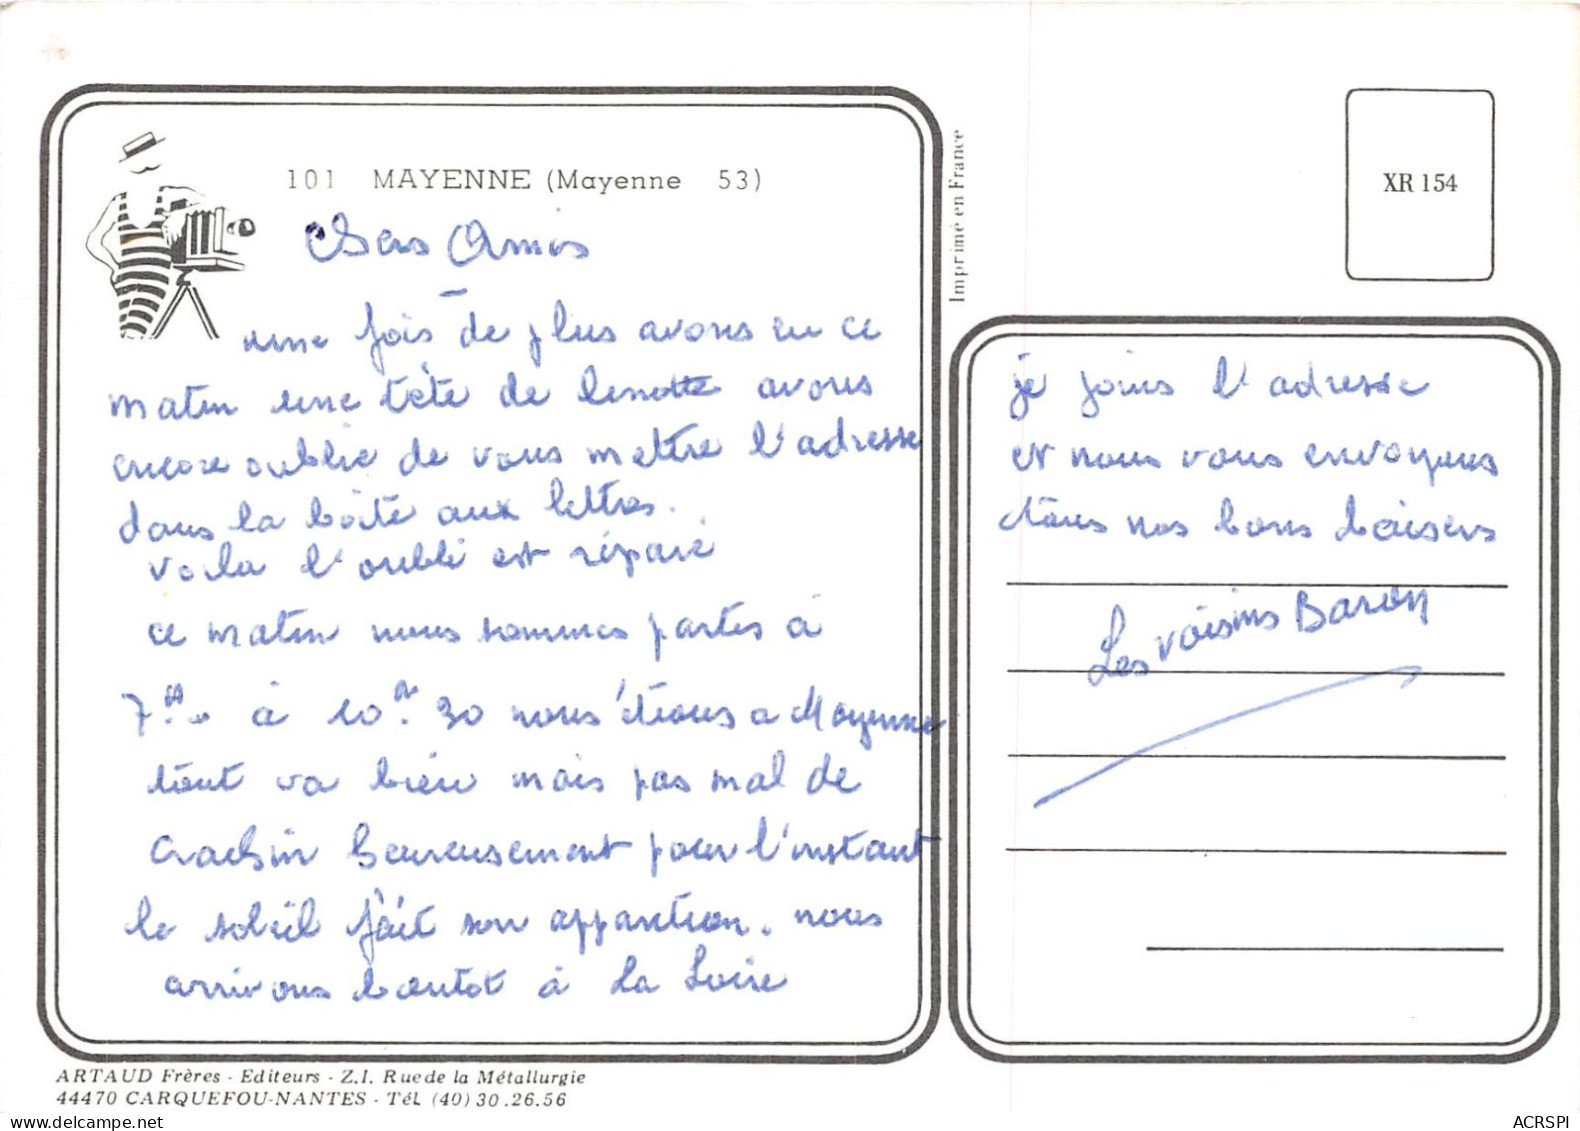 101 MAYENNE (Mayenne 53)
Chers Amis
une fois de plus avons eu ce
matin une tête de linotte avons
encore oublié de vous mettre l'adresse
dans la boîte aux lettres.
voila l'oubli est réparé
ce matin nous sommes partis à
7h à 10h 30 nous étions a Mayenne
tout va bien mais pas mal de
crachin heureusement pour l'instant
le soleil fait son apparition. nous
arrivons bientot à La Loire
ARTAUD Frères - Editeurs - Z.I. Rue de la Métallurgie
44470 CARQUEFOU-NANTES - Tél. (40) 30.26.56
Imprimé en France
XR 154
je joins l'adresse
et nous vous envoyons
tous nos bons baisers
Les voisins Baron
ACRSPI